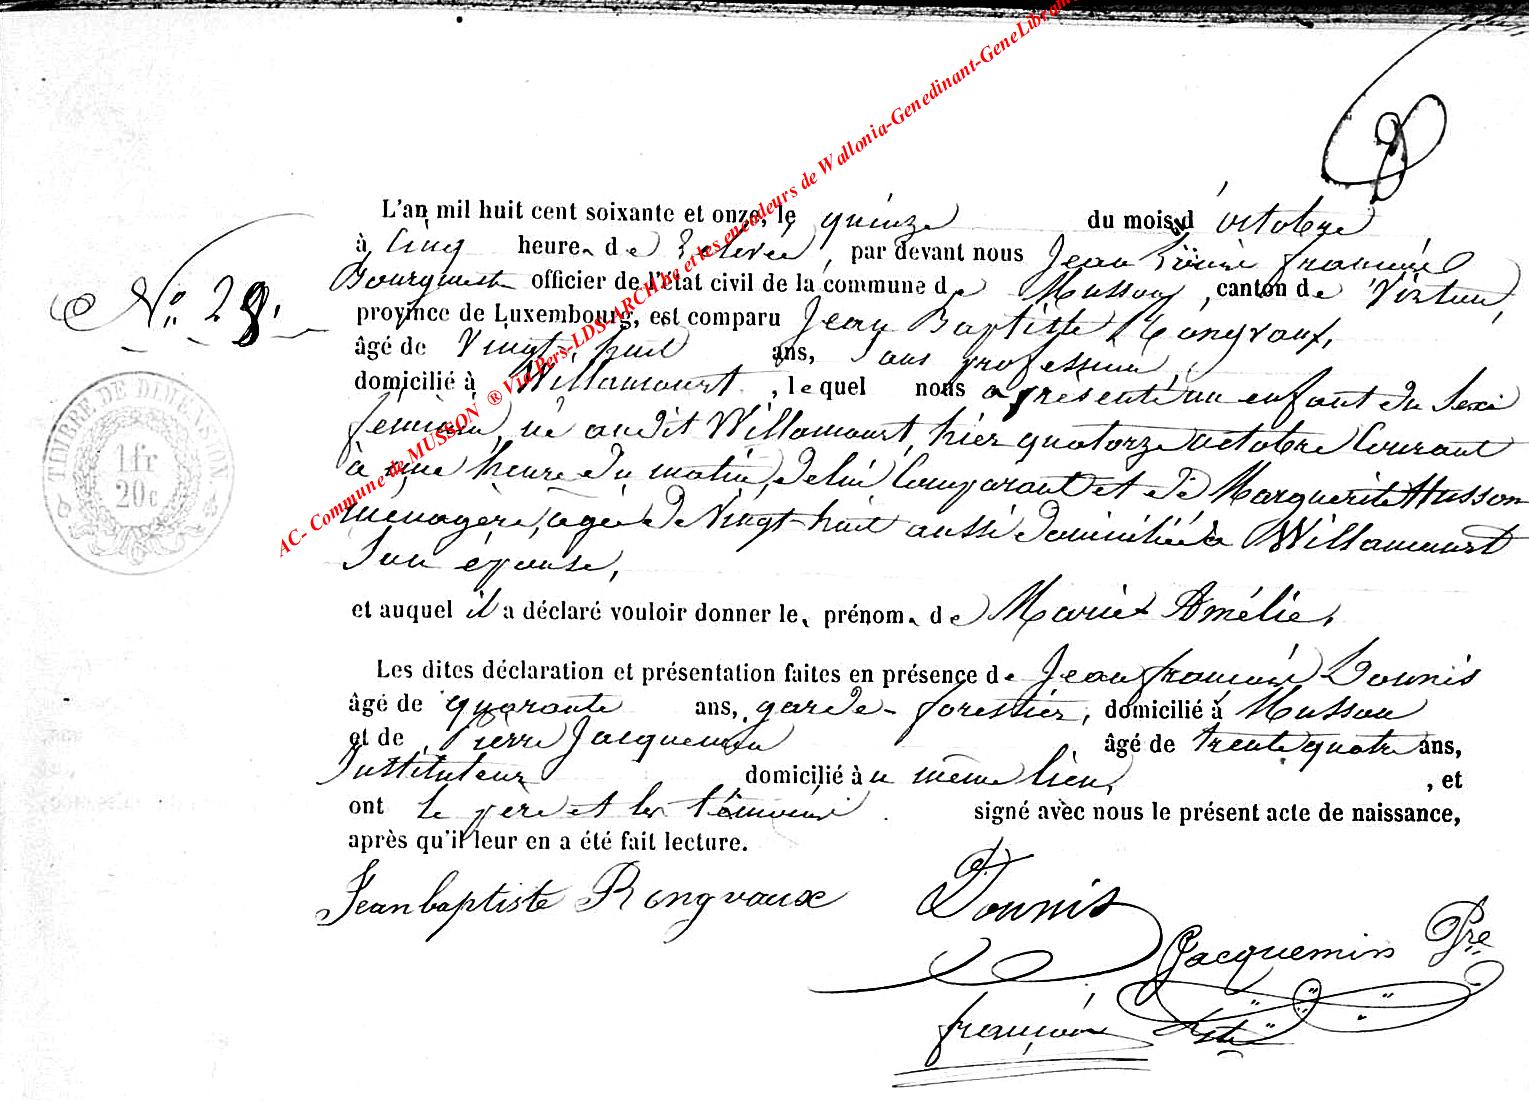 AC- Commune de MUSSON ® Via Pers-LDS-ARCHbe et les encodeurs de Wallonia-Genedinant-GeneLibram
L'an mil huit cent soixante et onze, le quinze du mois d'octobre
à cinq heures de relevée, par devant nous Jean Louis françois
officier de l'état civil de la commune de Musson, canton de Virton,
N° 28.
province de Luxembourg, est comparu Jean Baptiste Rongvaux,
âgé de Vingt-huit ans, sans profession,
domicilié à Willancourt, le quel nous a présenté un enfant du sexe
féminin, né audit Willancourt, hier quatorze octobre courant
à une heure du matin, de lui comparant et de Marguerite Husson
ménagère, agée de Vingt-huit aussi domiciliée à Willancourt
son épouse,
TIMBRE DE DIMENSION
1 fr
20c
et auquel il a déclaré vouloir donner les prénoms de Marie Amélie,
Les dites déclaration et présentation faites en présence de Jean françois Dounis
âgé de quarante ans, garde-forestier, domicilié à Musson
et de Pierre Jacquemin âgé de trente quatre ans,
Instituteur domicilié au même lieu, , et
ont le père et les témoins signé avec nous le présent acte de naissance,
après qu'il leur en a été fait lecture.
Jeanbaptiste Rongvaux Dounis
Jacquemin Pre
françois